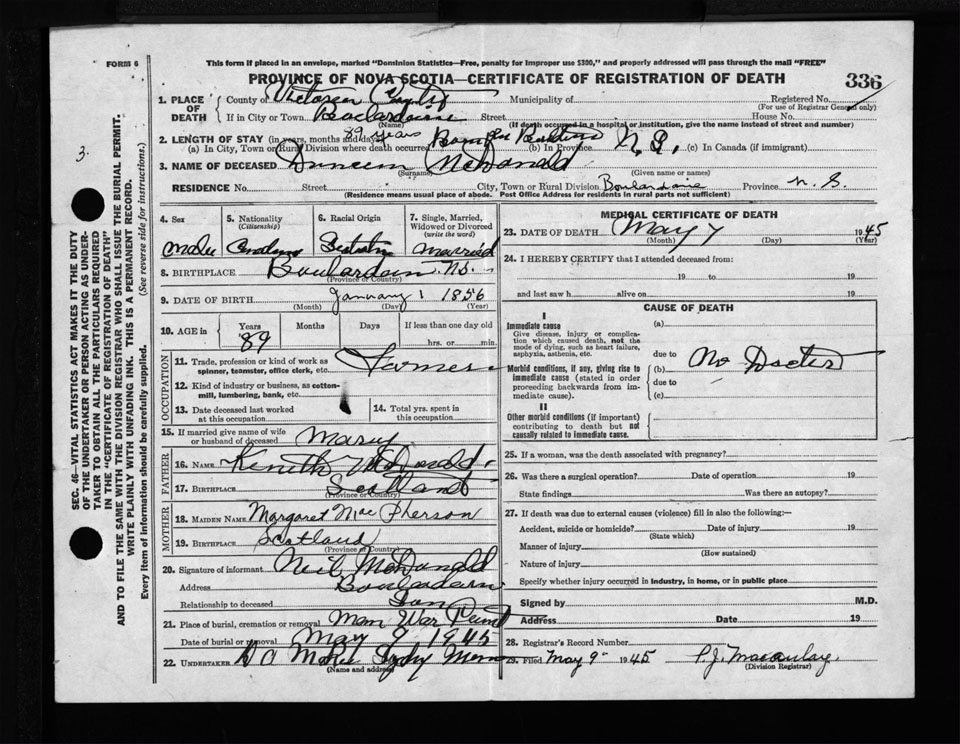 FORM 6
This form if placed in an envelope, marked "Dominion Statistics—Free, penalty for improper use $300," and properly addressed will pass through the mail "FREE"
PROVINCE OF NOVA SCOTIA—CERTIFICATE OF REGISTRATION OF DEATH
336
1. PLACE OF DEATH
County of Victoria County Municipality of Registered No.
(For use of Registrar General only)
If in City or Town Street House No.
(Name) (If death occurred in a hospital or institution, give the name instead of street and number)
2. LENGTH OF STAY (in years, months and days) 89 years
(a) In City, Town or Rural Division where death occurred (b) In Province N.S. (c) In Canada (if immigrant)
3. NAME OF DECEASED Duncan McDonald
(Surname) (Given name or names)
RESIDENCE No. Street City, Town or Rural Division Boulardarie Province N.S.
(Residence means usual place of abode. Post Office Address for residents in rural parts not sufficient)
4. Sex
5. Nationality (Citizenship)
6. Racial Origin
7. Single, Married, Widowed or Divorced (write the word)
Married
8. BIRTHPLACE N.S.
(Province or Country)
9. DATE OF BIRTH January 1 1856
(Month) (Day) (Year)
10. AGE in Years Months Days If less than one day old
89 hrs. or min.
OCCUPATION
11. Trade, profession or kind of work as spinner, teamster, office clerk, etc. Farmer
12. Kind of industry or business, as cotton-mill, lumbering, bank, etc.
13. Date deceased last worked at this occupation
14. Total yrs. spent in this occupation
15. If married give name of wife or husband of deceased Mary
FATHER
16. NAME McDonald
17. BIRTHPLACE Scotland
(Province or Country)
MOTHER
18. MAIDEN NAME Margaret MacPherson
19. BIRTHPLACE Scotland
(Province or Country)
20. Signature of informant Neil McDonald
Address
Relationship to deceased Son
21. Place of burial, cremation or removal Man War Point
Date of burial or removal May 9 1945
22. UNDERTAKER
(Name and address)
MEDICAL CERTIFICATE OF DEATH
23. DATE OF DEATH May 7 1945
(Month) (Day) (Year)
24. I HEREBY CERTIFY that I attended deceased from:
19 to 19
and last saw h alive on 19
CAUSE OF DEATH
I
Immediate cause
Give disease, injury or complication which caused death, not the mode of dying, such as heart failure, asphyxia, asthenia, etc.
(a)
due to
Morbid conditions, if any, giving rise to immediate cause (stated in order proceeding backwards from immediate cause).
(b) No Doctor
due to
(c)
II
Other morbid conditions (if important) contributing to death but not causally related to immediate cause.
25. If a woman, was the death associated with pregnancy?
26. Was there a surgical operation? Date of operation 19
State findings Was there an autopsy?
27. If death was due to external causes (violence) fill in also the following:—
Accident, suicide or homicide? Date of injury 19
(State which)
Manner of injury
(How sustained)
Nature of injury
Specify whether injury occurred in industry, in home, or in public place
Signed by M.D.
Address Date 19
28. Registrar's Record Number
29. Filed May 9 1945 P.J. Macaulay
(Division Registrar)
3.
SEC. 46—VITAL STATISTICS ACT MAKES IT THE DUTY
OF THE UNDERTAKER OR PERSON ACTING AS UNDER-
TAKER TO OBTAIN ALL THE PARTICULARS REQUIRED
IN THE "CERTIFICATE OF REGISTRATION OF DEATH"
AND TO FILE THE SAME WITH THE DIVISION REGISTRAR WHO SHALL ISSUE THE BURIAL PERMIT.
WRITE PLAINLY WITH UNFADING INK. THIS IS A PERMANENT RECORD.
Every item of information should be carefully supplied. (See reverse side for instructions.)